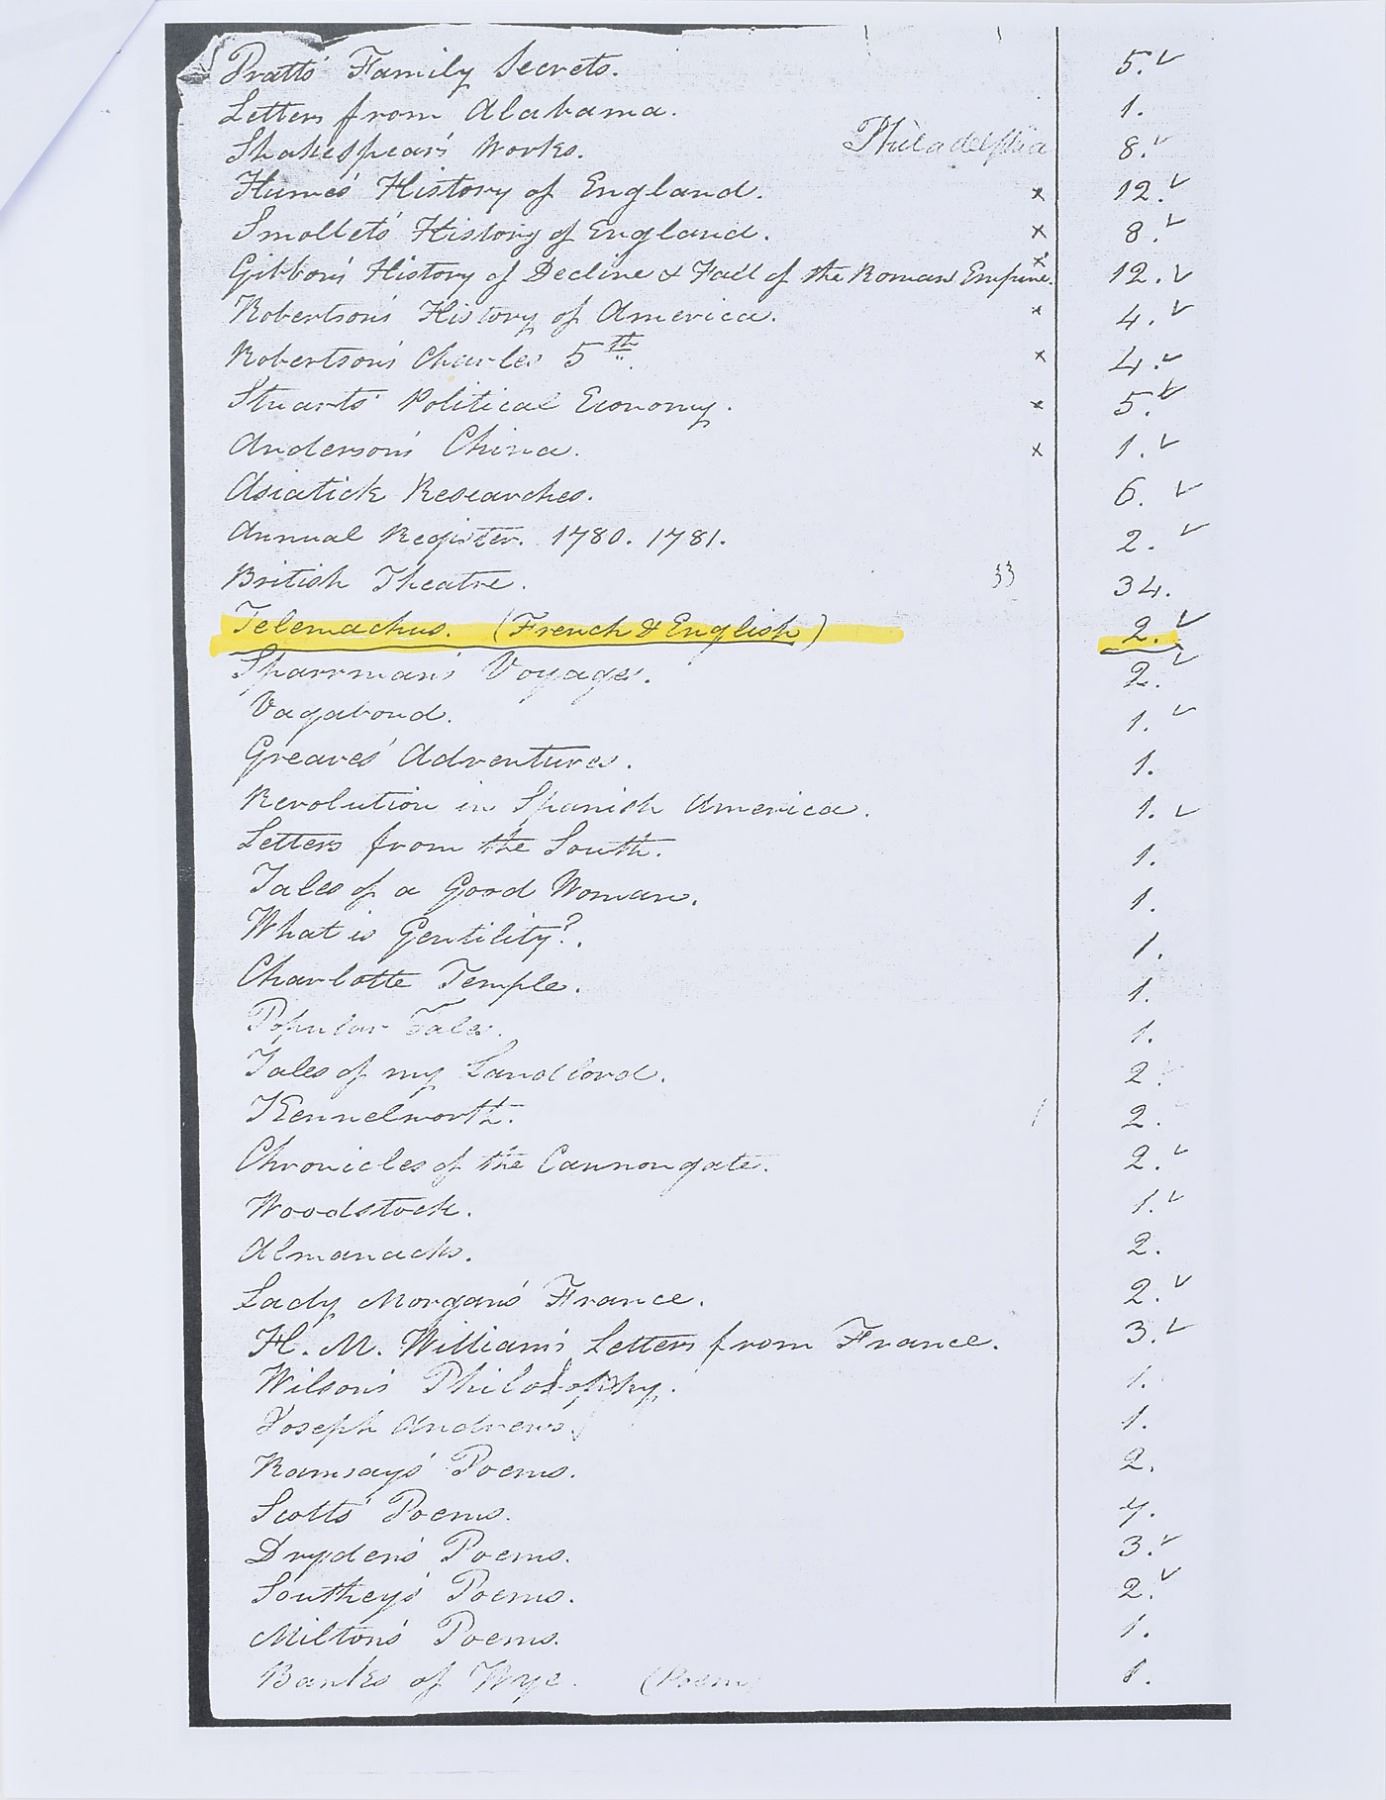 Pratts' Family Secrets. 5. ✓
Letters from Alabama. 1.
Shakespear's Works. Philadelphia 8. ✓
Humes' History of England. x 12. ✓
Smollets' History of England. x 8. ✓
Gibbon's History of Decline & Fall of the Roman Empire. x 12. ✓
Robertson's History of America. x 4. ✓
Robertson's Charles 5th. x 4. ✓
Stuarts' Political Economy. x 5. ✓
Anderson's China. x 1. ✓
Asiatick Researches. 6. ✓
Annual Register. 1780. 1781. 2. ✓
British Theatre. 33 34.
Telemachus. (French & English) 2. ✓
Sparrman's Voyages. 2. ✓
Vagabond. 1. ✓
Greaves' Adventures. 1.
Revolution in Spanish America. 1. ✓
Letters from the South. 1.
Tales of a Good Woman. 1.
What is Gentility?. 1.
Charlotte Temple. 1.
Popular Tales. 1.
Tales of my Landlord. 2.
Kennelworth. 2.
Chronicles of the Cannongate. 2. ✓
Woodstock. 1. ✓
Almanacks. 2.
Lady Morgan's France. 2. ✓
H. M. William's Letters from France. 3. ✓
Wilson's Philosophy. 1.
Joseph Andrews. 1.
Ramsays' Poems. 2.
Scotts' Poems. 7.
Dryden's Poems. 3. ✓
Southey's Poems. 2. ✓
Milton's Poems. 1.
Banks of Wye. (Poem) 1.